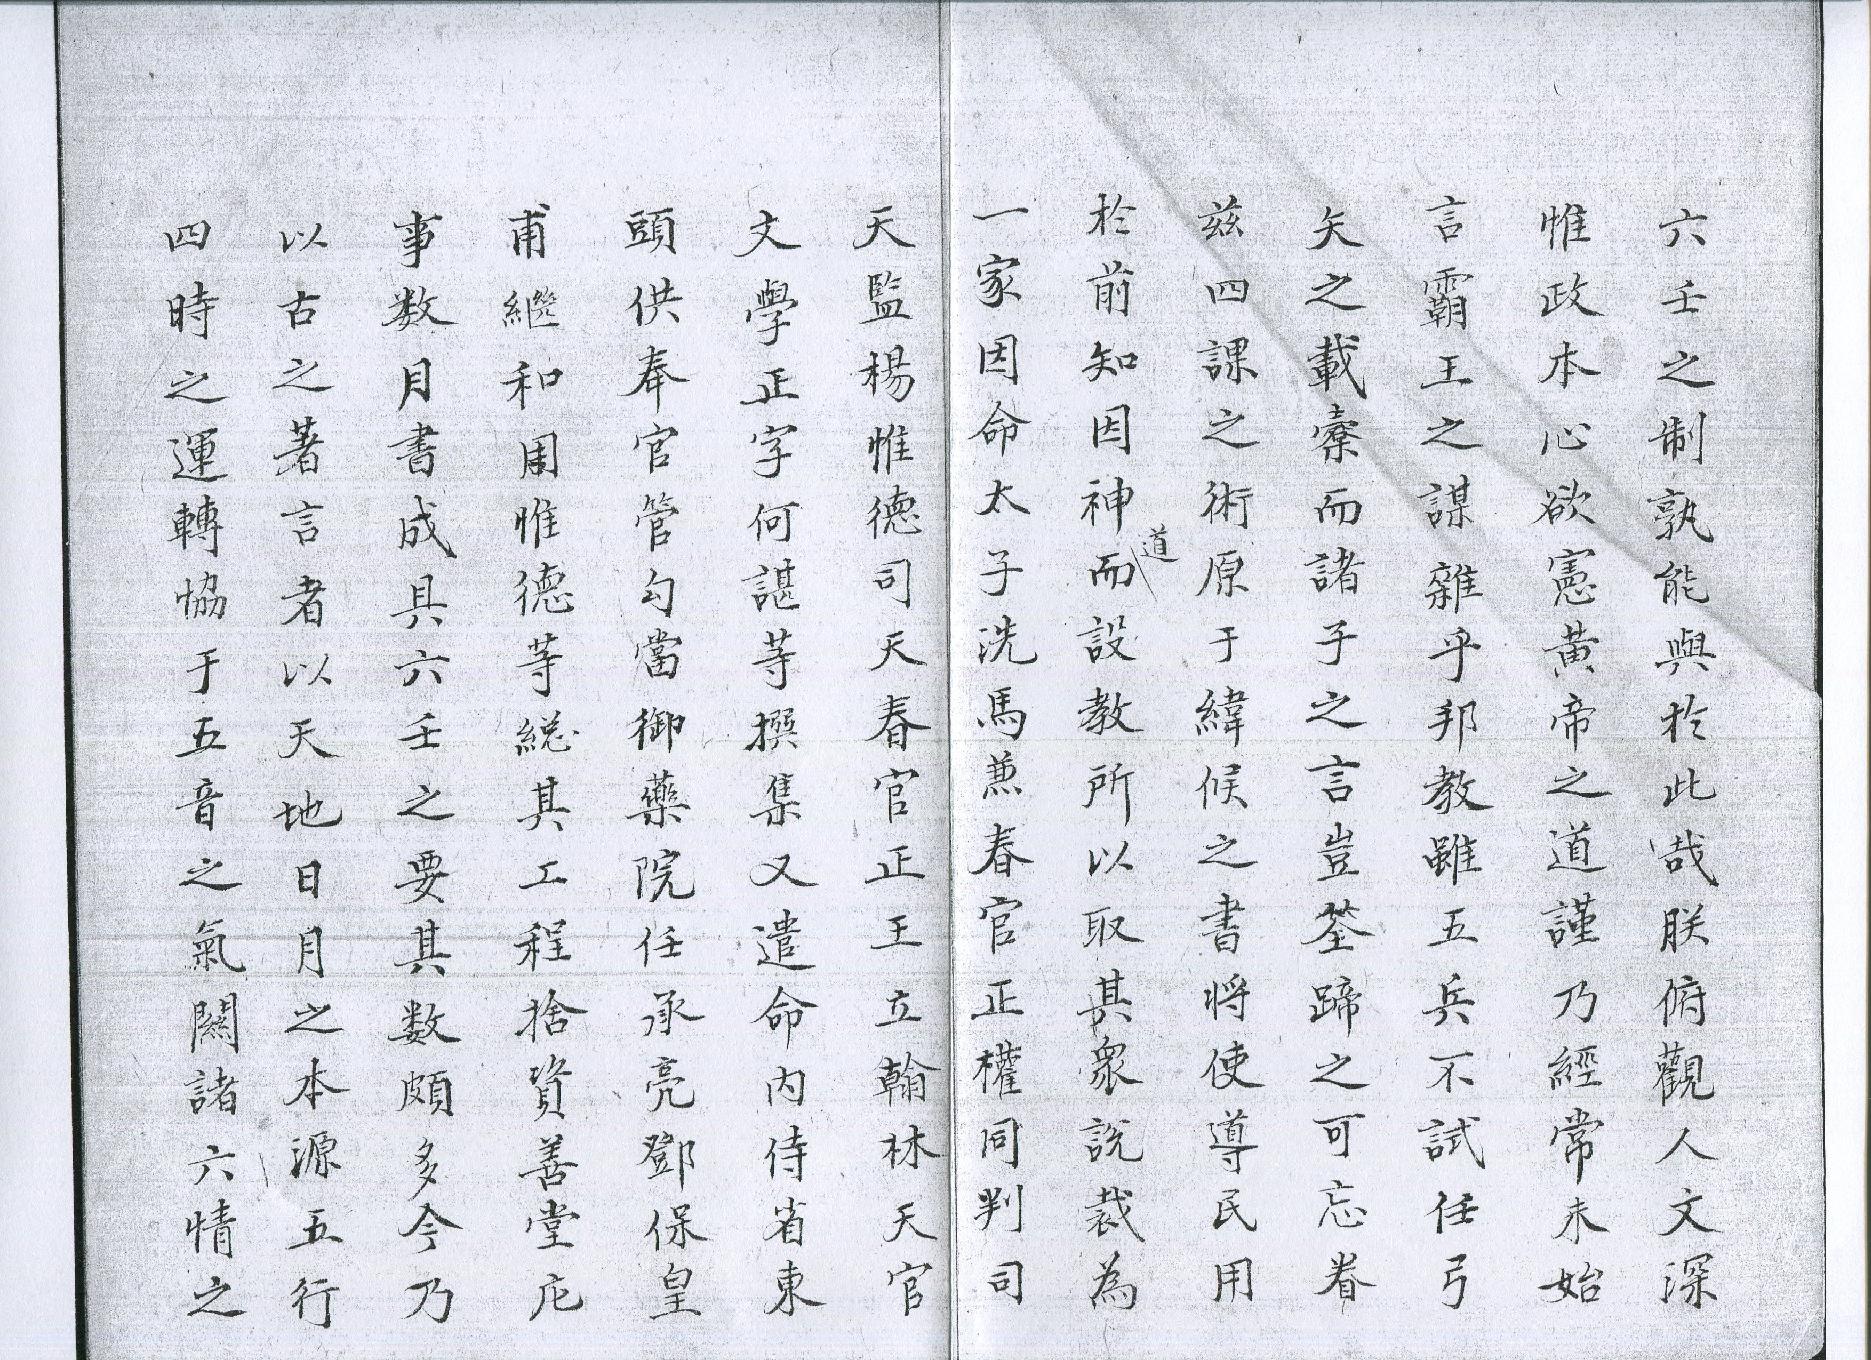 六壬之制孰能與於此哉朕俯觀人文深
惟政本心欲憲黃帝之道謹乃經常未始
言霸王之謀雜乎邦教雖五兵不試任弓
矢之載櫜而諸子之言豈荃蹄之可忘眷
兹四課之術原于緯候之書將使導民用
於前知因神道而設教所以取其衆說裁為
一家因命太子洗馬兼春官正權同判司
天監楊惟德司天春官正王立翰林天官
文學正字何諶等撰集又遣命內侍省東
頭供奉官管勾當御藥院任承亮鄧保皇
甫繼和周惟德等総其工程捨資善堂庀
事数月書成具六壬之要其数頗多今乃
以古之著言者以天地日月之本源五行
四時之運轉恊于五音之氣闗諸六情之